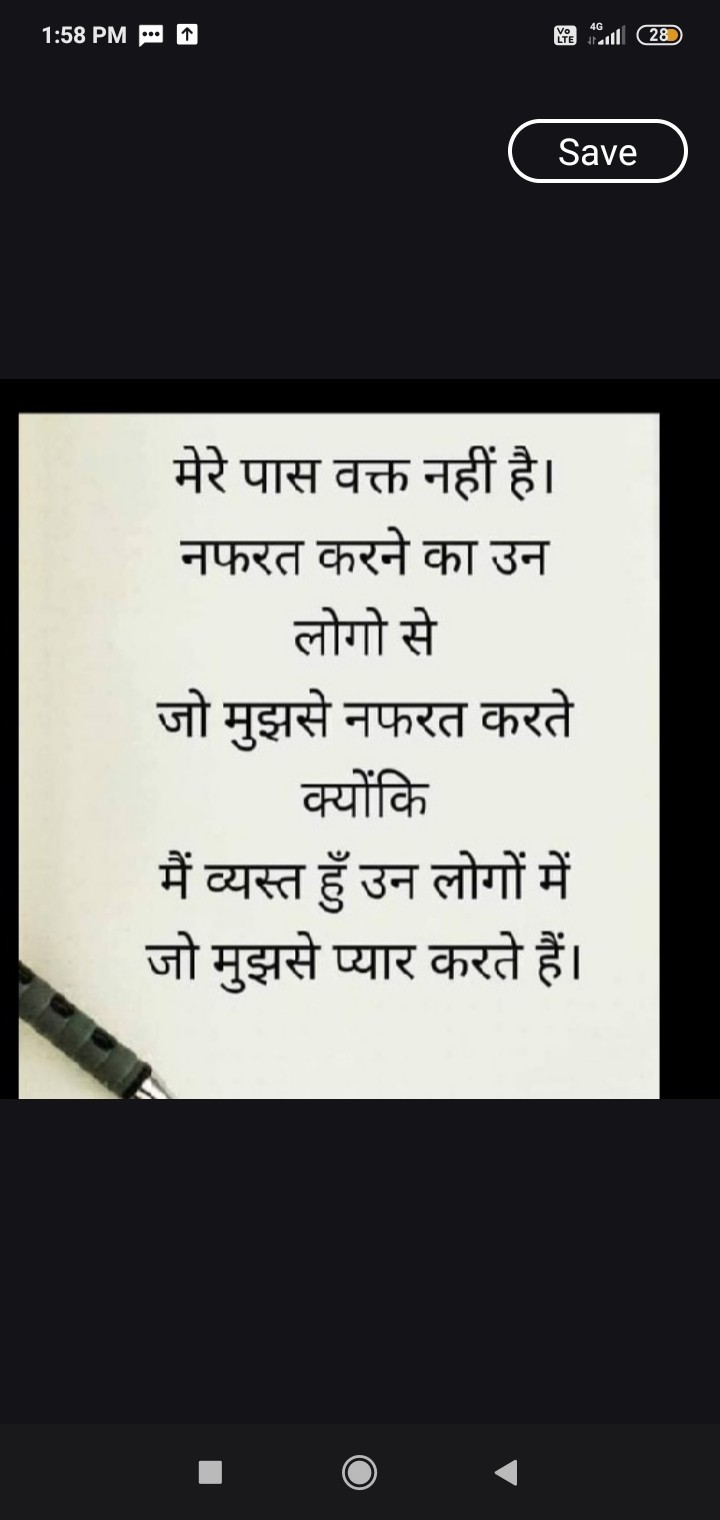 1:58 PM
Vo LTE 4G 28
Save
मेरे पास वक्त नहीं है।
नफरत करने का उन
लोगो से
जो मुझसे नफरत करते
क्योंकि
मैं व्यस्त हुँ उन लोगों में
जो मुझसे प्यार करते हैं।